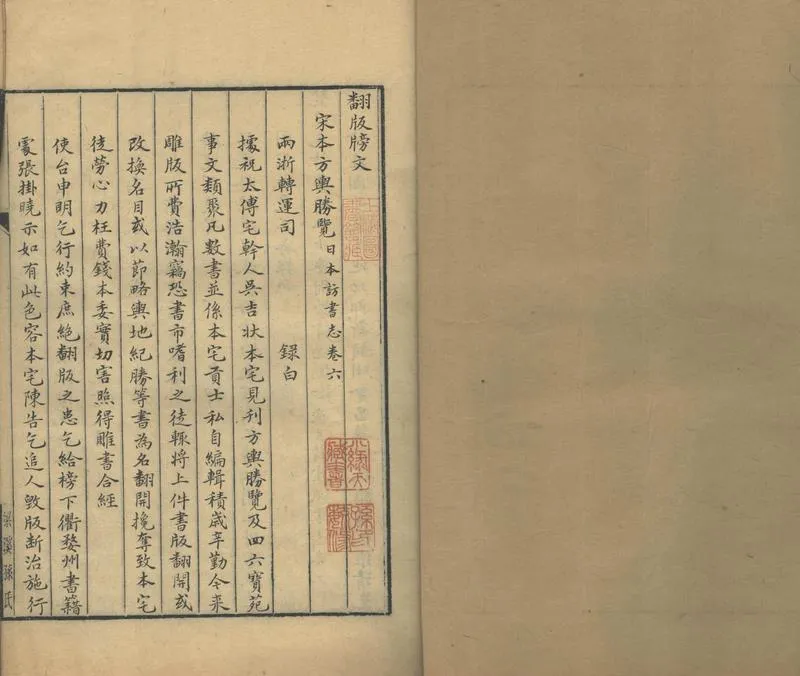 翻版牓文
宋本方輿勝覽 日本訪書志卷六
兩浙轉運司 録白
據祝太傅宅幹人吳吉狀本宅見刋方輿勝覽及四六寶苑
事文類聚凡數書並係本宅貢士私自編輯積歲辛勤今来
雕版所費浩瀚竊恐書市嗜利之徒輒將上件書版翻開或
改換名目或以節略輿地紀勝等書為名翻開攙奪致本宅
徒勞心力枉費錢本委實切害照得雕書合經
使台申明乞行約束庶絶翻版之患乞給榜下衢婺州書籍
處張掛曉示如有此色容本宅陳告乞追人毀版断治施行
梁溪孫氏